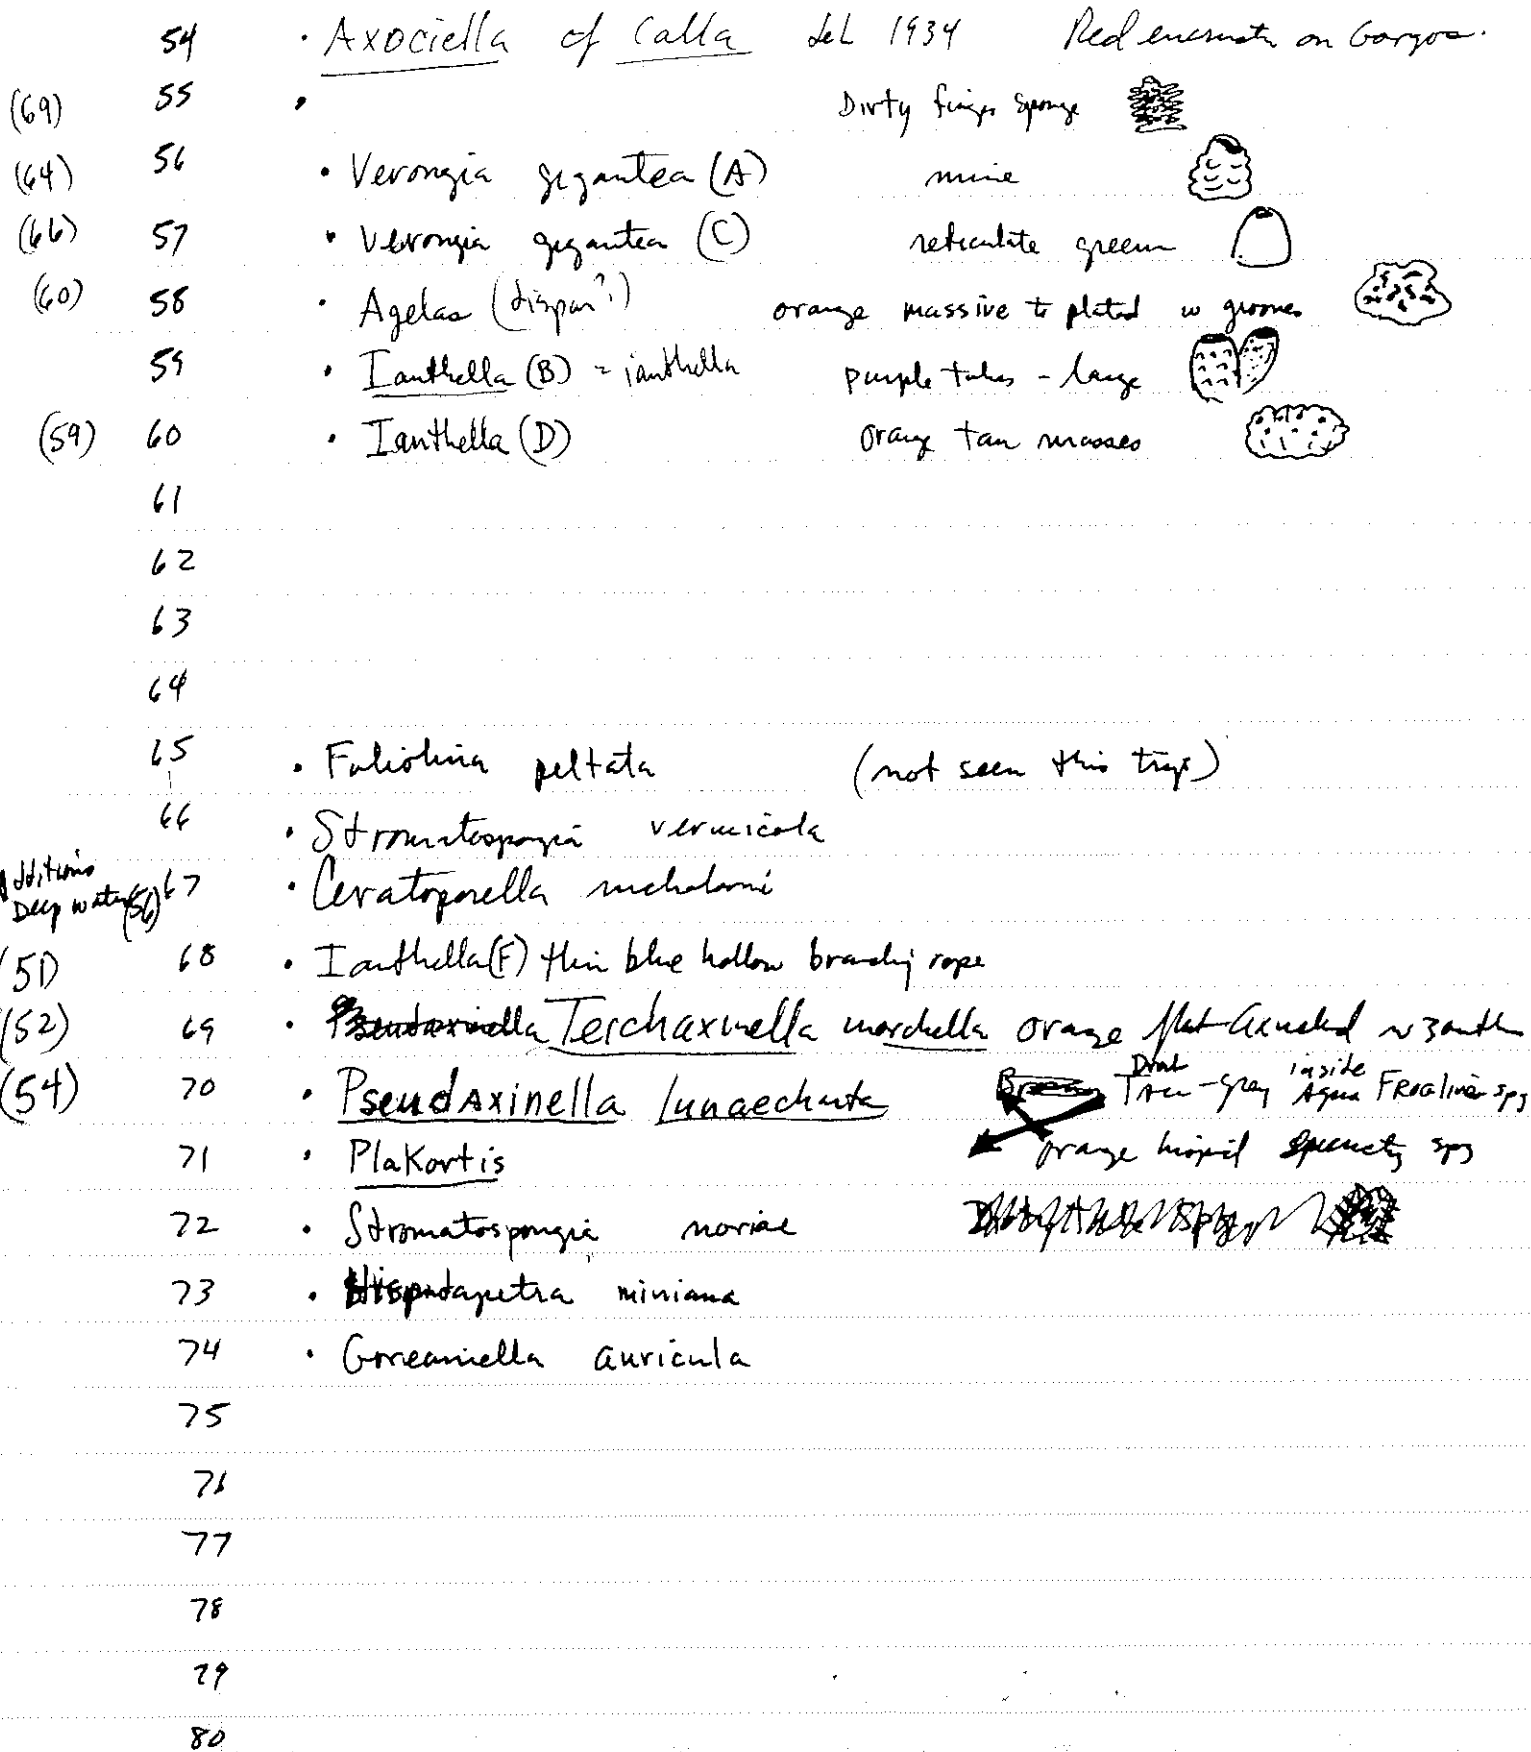 54 · Axociella cf Calla deL 1934 Red encrust on Gorgos.
(69) 55 · Dirty finger sponge
(64) 56 · Verongia gigantea (A) mine
(66) 57 · Verongia gigantea (C) reticulate green
(60) 58 · Agelas (dispar?) orange massive to plated w grooves
59 · Ianthella (B) = ianthella purple tubes - large
(59) 60 · Ianthella (D) orange tan masses
61
62
63
64
65 · Foliolina peltata (not seen this trip)
66 · Stromatospongia vermicola
Additions
Deep water (56) 67 · Ceratoporella nicholsoni
(51) 68 · Ianthella (F) thin blue hollow branching rope
(52) 69 · Teichaxinella morchella orange flat w zoanth
(54) 70 · Pseudaxinella lunaecharta Drab Tan-gray inside Aqua spg
71 · Plakortis orange hispid spg
72 · Stromatospongia norae
73 · Hispidapetra miniana
74 · Goreauiella auricula
75
76
77
78
79
80